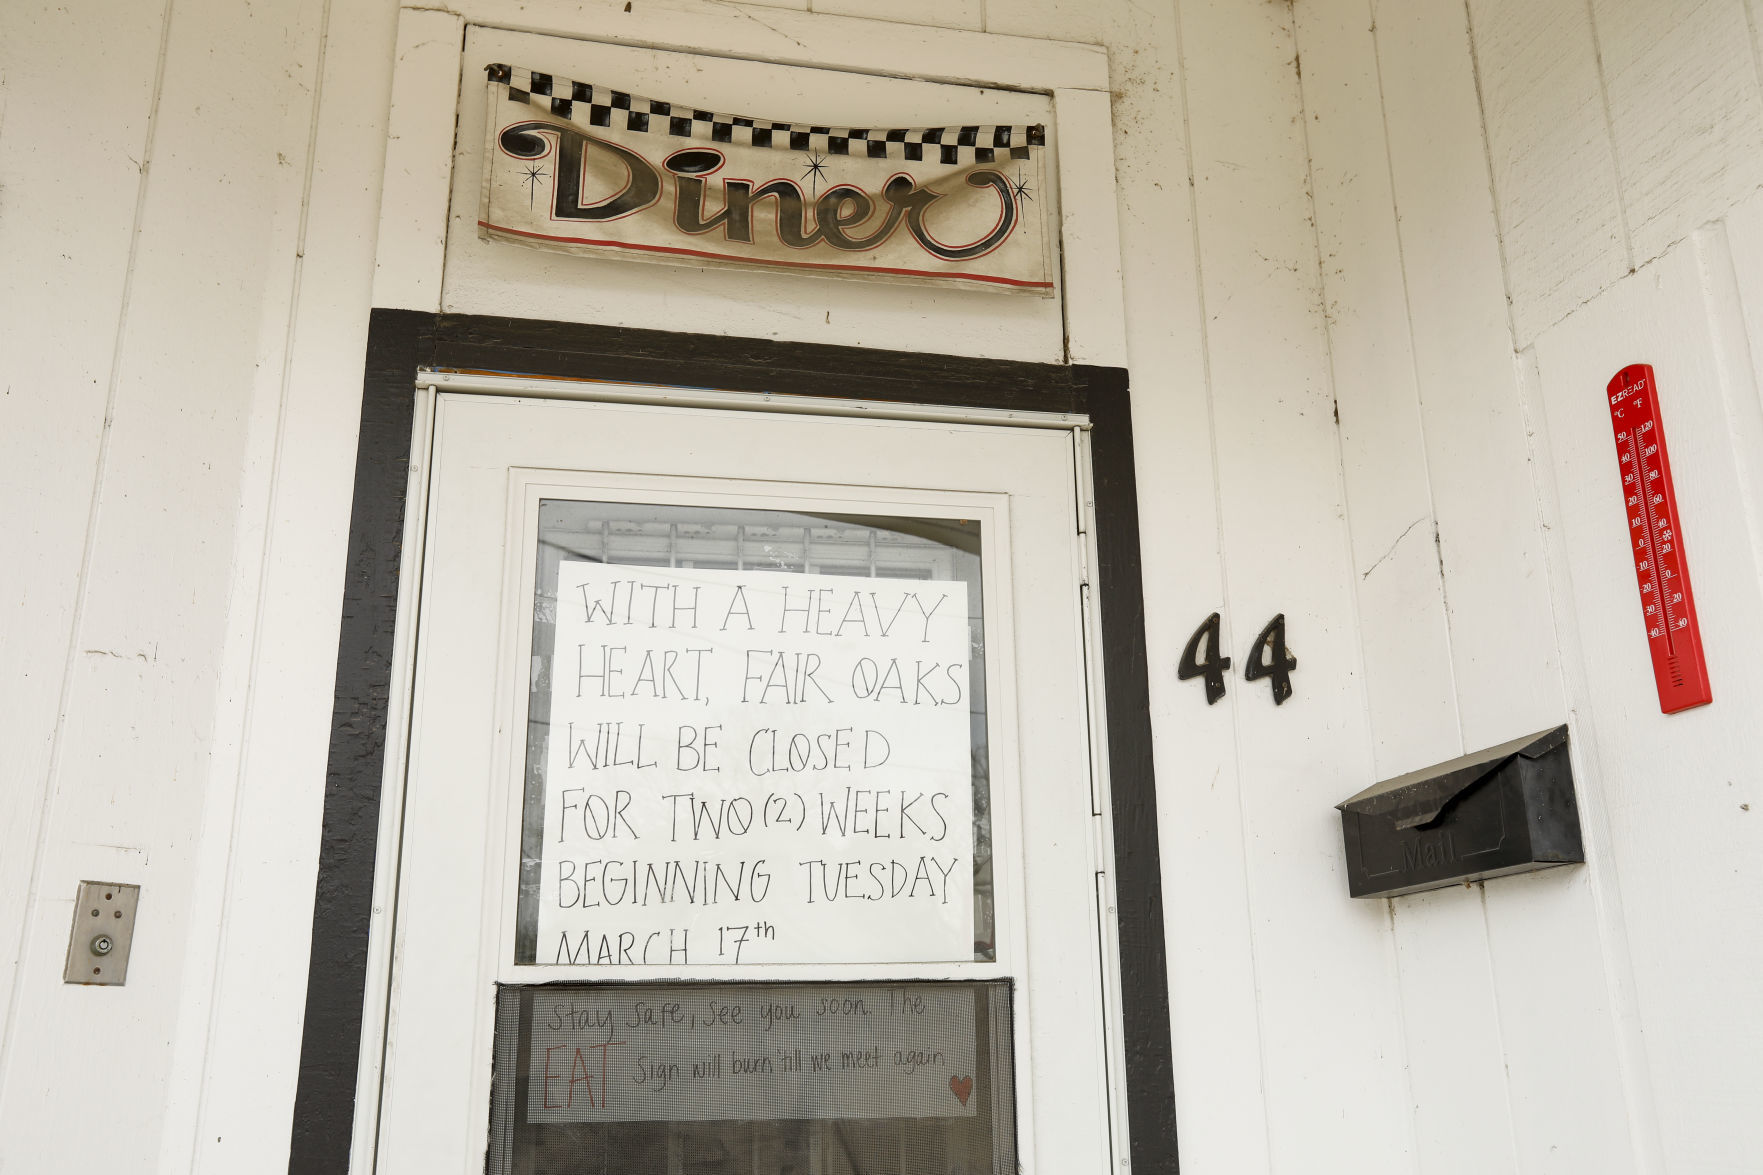 Diner
WITH A HEAVY
HEART, FAIR OAKS
WILL BE CLOSED
FOR TWO (2) WEEKS
BEGINNING TUESDAY
MARCH 17th
Stay safe, see you soon. The
EAT Sign will burn 'till we meet again.
44
Mail
EZREAD
°C °F
50 120
40 100
30 80
20 60
10 40
0 20
-10 0
-20 20
-30
-40 -40